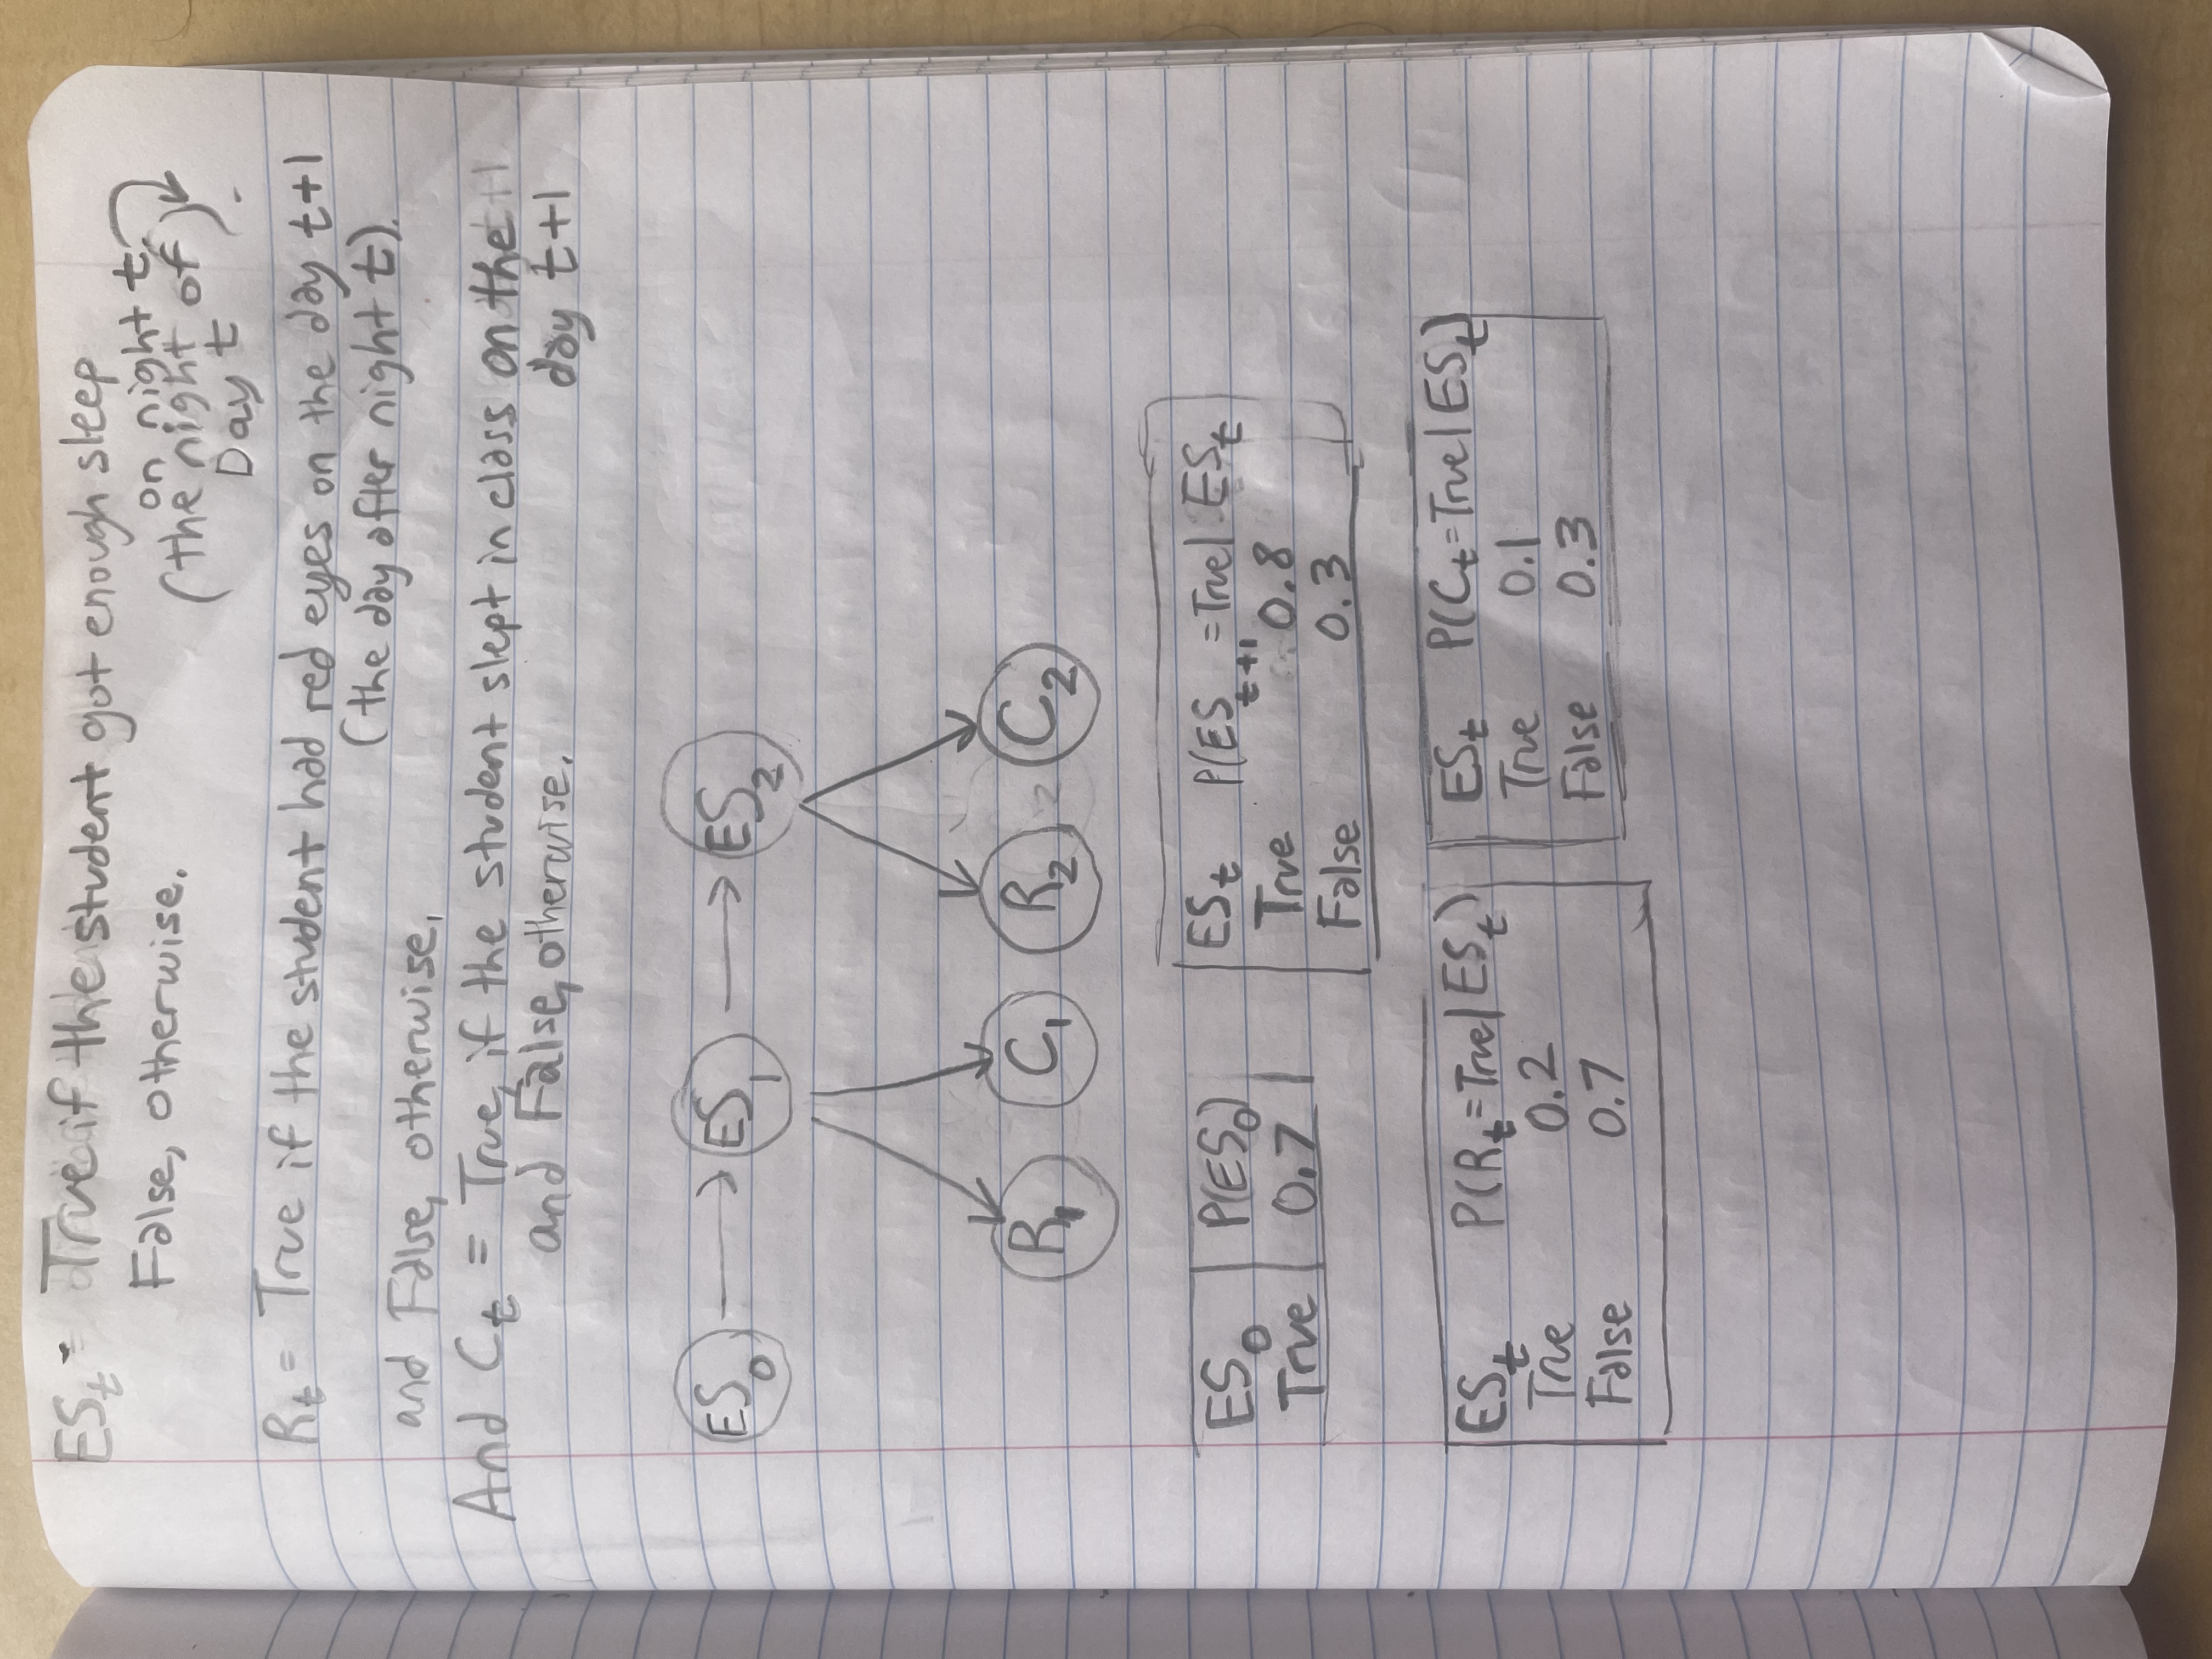 ES_t = True if the student got enough sleep
on night t.
False, otherwise.
(the night of
Day t).
R_t = True if the student had red eyes on the day t+1
(the day after night t).
and False, otherwise,
And C_t = True, if the student slept in class on the
and False, otherwise. day t+1
ES_0 ES_1 ES_2
R_1 C_1 R_2 C_2
ES_0 P(ES_0)
True 0.7
ES_t P(ES_t+1 =True| ES_t
True 0.8
False 0.3
ES_t P(R_t=True|ES_t)
True 0.2
False 0.7
ES_t P(C_t=True|ES_t)
True 0.1
False 0.3